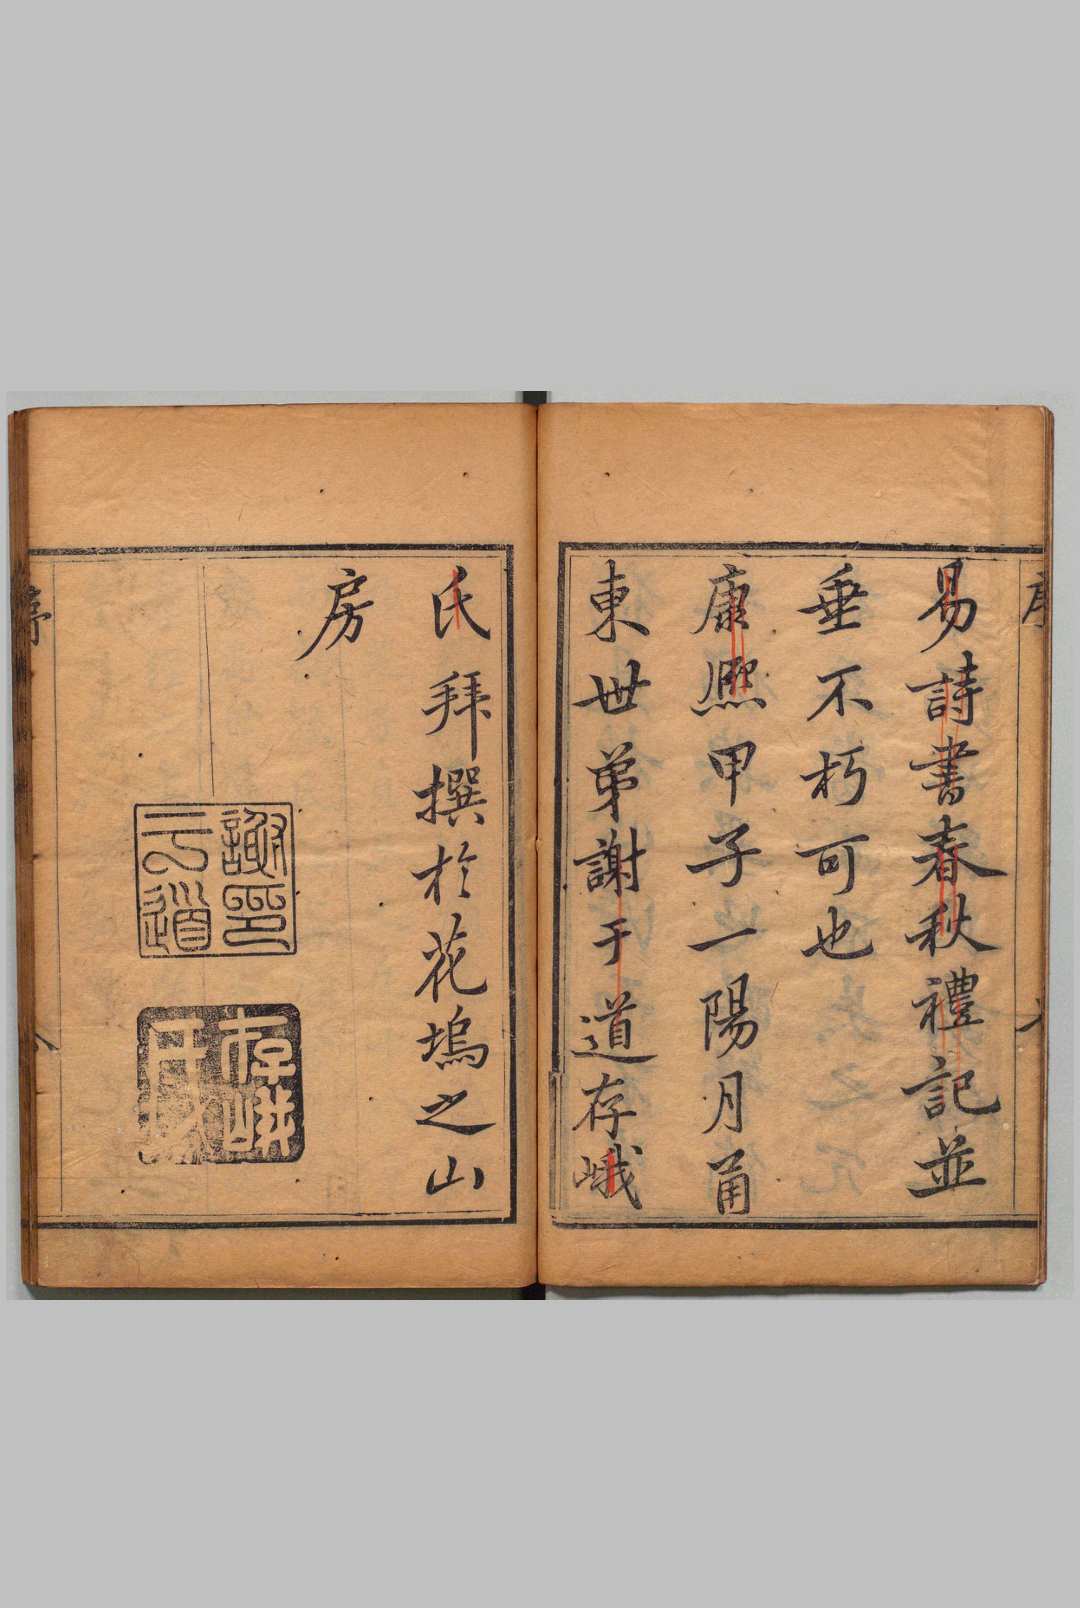 易詩書春秋禮記並
垂不朽可也
康熈甲子一陽月甬
東世弟謝于道存峨
氏拜撰於花塢之山
房
謝印
于道
序